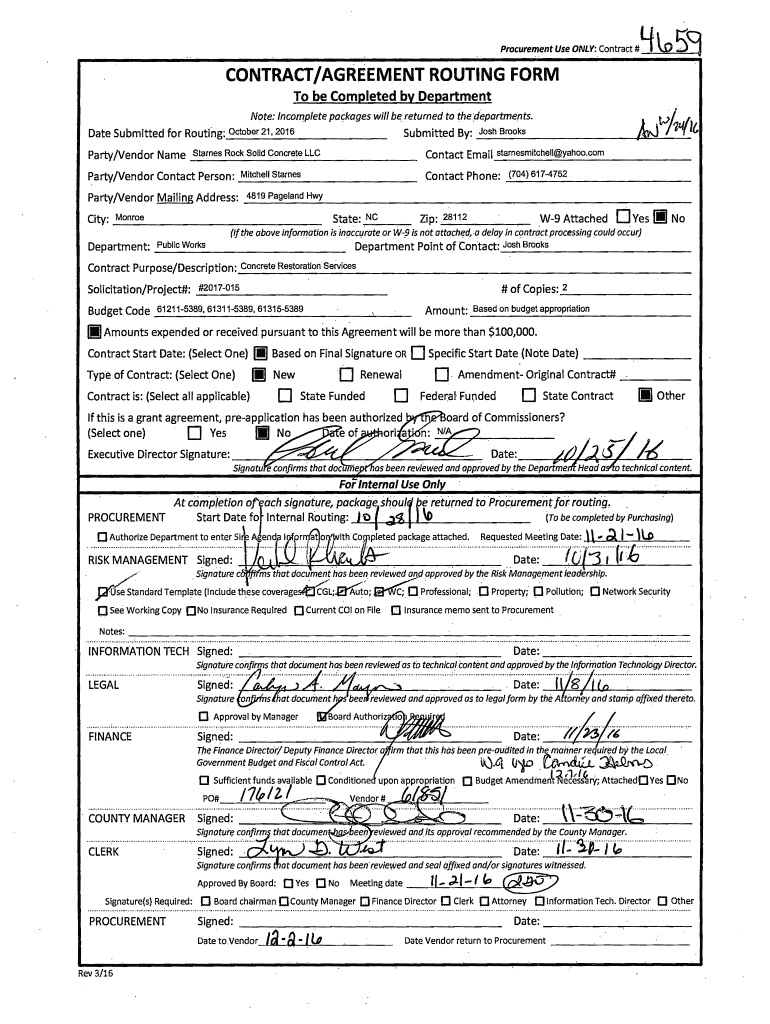 Procurement Use ONLY: Contract # 4659
CONTRACT/AGREEMENT ROUTING FORM
To be Completed by Department
Note: Incomplete packages will be returned to the departments.
Date Submitted for Routing: October 21, 2016 Submitted By: Josh Brooks
Party/Vendor Name Starnes Rock Solid Concrete LLC Contact Email starnesmitchell@yahoo.com
Party/Vendor Contact Person: Mitchell Starnes Contact Phone: (704) 617-4752
Party/Vendor Mailing Address: 4819 Pageland Hwy
City: Monroe State: NC Zip: 28112 W-9 Attached Yes No
(If the above information is inaccurate or W-9 is not attached, a delay in contract processing could occur)
Department: Public Works Department Point of Contact: Josh Brooks
Contract Purpose/Description: Concrete Restoration Services
Solicitation/Project#: #2017-015 # of Copies: 2
Budget Code 61211-5389, 61311-5389, 61315-5389 Amount: Based on budget appropriation
Amounts expended or received pursuant to this Agreement will be more than $100,000.
Contract Start Date: (Select One) Based on Final Signature OR Specific Start Date (Note Date)
Type of Contract: (Select One) New Renewal Amendment- Original Contract#
Contract is: (Select all applicable) State Funded Federal Funded State Contract Other
If this is a grant agreement, pre-application has been authorized by the Board of Commissioners?
(Select one) Yes No Date of authorization: N/A
Executive Director Signature: Date: 10/25/16
Signature confirms that document has been reviewed and approved by the Department Head as to technical content.
For Internal Use Only
At completion of each signature, package should be returned to Procurement for routing.
PROCUREMENT Start Date for Internal Routing: 10/28/16 (To be completed by Purchasing)
Authorize Department to enter Sire Agenda Information with Completed package attached. Requested Meeting Date: 11-21-16
RISK MANAGEMENT Signed: Date: 10/31/16
Signature confirms that document has been reviewed and approved by the Risk Management leadership.
Use Standard Template (Include these coverages CGL; Auto; WC; Professional; Property; Pollution; Network Security
See Working Copy No Insurance Required Current COI on File Insurance memo sent to Procurement
Notes:
INFORMATION TECH Signed: Date:
Signature confirms that document has been reviewed as to technical content and approved by the Information Technology Director.
LEGAL Signed: Date: 11/8/16
Signature confirms that document has been reviewed and approved as to legal form by the Attorney and stamp affixed thereto.
Approval by Manager Board Authorization Required
FINANCE Signed: Date: 11/23/16
The Finance Director/ Deputy Finance Director affirm that this has been pre-audited in the manner required by the Local
Government Budget and Fiscal Control Act.
Sufficient funds available Conditioned upon appropriation Budget Amendment Necessary; Attached Yes No
PO# 176121 Vendor # 61851
COUNTY MANAGER Signed: Date: 11-30-16
Signature confirms that document has been reviewed and its approval recommended by the County Manager.
CLERK Signed: Lynn G. West Date: 11-30-16
Signature confirms that document has been reviewed and seal affixed and/or signatures witnessed.
Approved By Board: Yes No Meeting date 11-21-16
Signature(s) Required: Board chairman County Manager Finance Director Clerk Attorney Information Tech. Director Other
PROCUREMENT Signed: Date:
Date to Vendor 12-2-16 Date Vendor return to Procurement
Rev 3/16